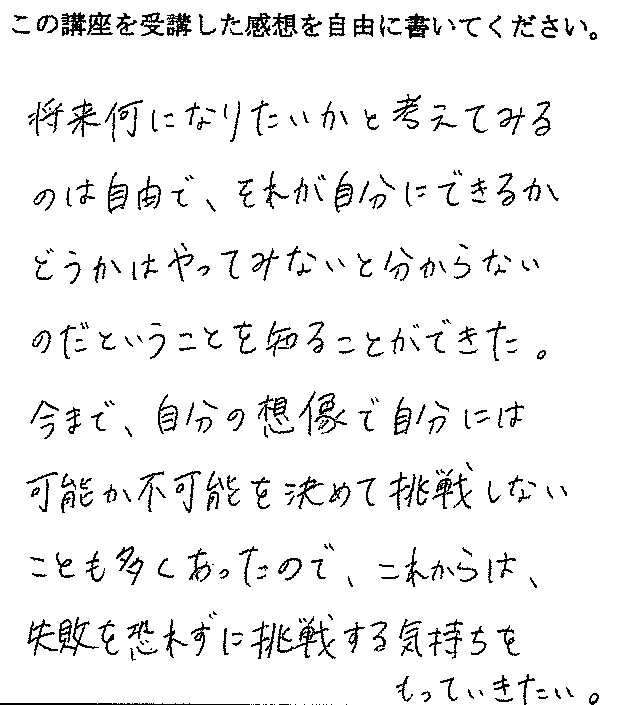 この講座を受講した感想を自由に書いてください。
将来何になりたいかと考えてみる
のは自由で、それが自分にできるか
どうかはやってみないと分からない
のだということを知ることができた。
今まで、自分の想像で自分には
可能か不可能を決めて挑戦しない
ことも多くあったので、これからは、
失敗を恐れずに挑戦する気持ちを
もっていきたい。